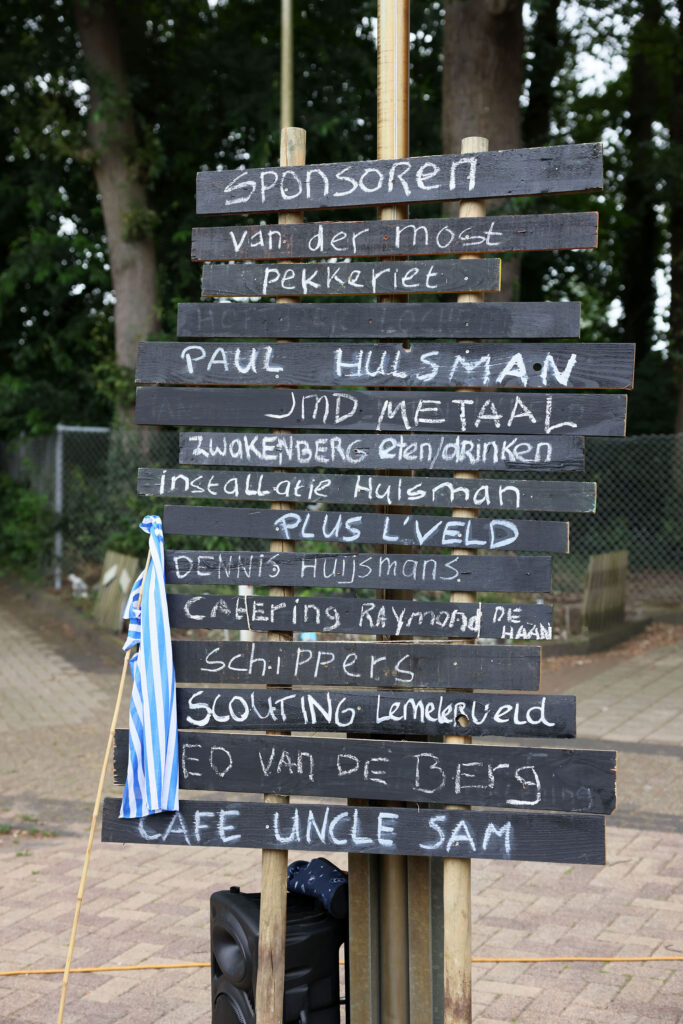 SPONSOREN
van der most
PEKKERIET
PAUL HULSMAN
JMD METAAL
ZWAKENBERG eten/drinken
installatie Hulsman
PLUS L'VELD
DENNIS HUIJSMANS
CATERING RAYMOND DE HAAN
SCHIPPERS
SCOUTING Lemelerveld
VAN DE BERG
CAFE UNCLE SAM